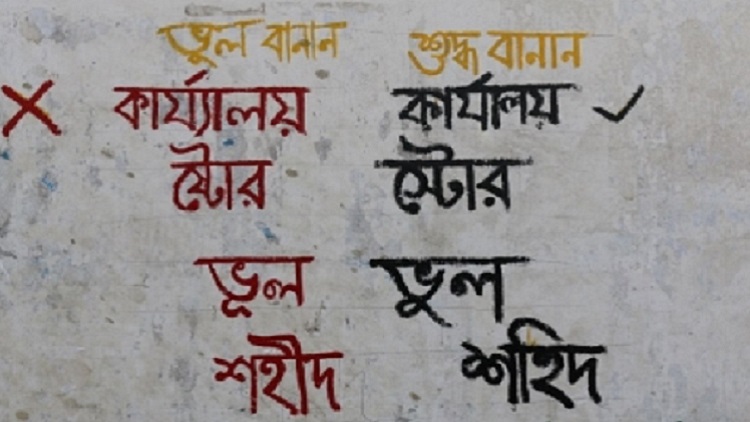 ভুল বানান শুদ্ধ বানান
কার্য্যালয় কার্যালয়
ষ্টোর স্টোর
ভূল ভুল
শহীদ শহিদ